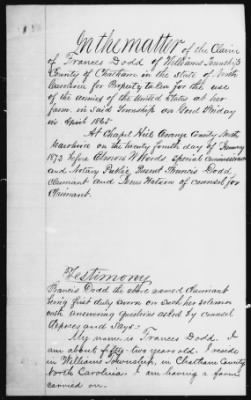 In the matter of the Claim
of Frances Dodd of Williams Township
County of Chatham in the state of North
Carolina for Property taken for the use
of the armies of the United States at her
farm in said Township on Good Friday
in April 1865
At Chapel Hill Orange County North
Carolina on the twenty fourth day of January
1873 before Edmon W Woods Special Commissioner
and Notary Public Present Frances Dodd
Claimant and Jones Watson of counsel for
Claimant.
Testimony
Francis Dodd the above named Claimant
being first duly sworn on such her solemn
oath answering questions asked by counsel
deposes and says:
My name is Frances Dodd. I
am about fifty two years old. I reside
in Williams Township, in Chatham County
North Carolina. I am having a farm
carried on.